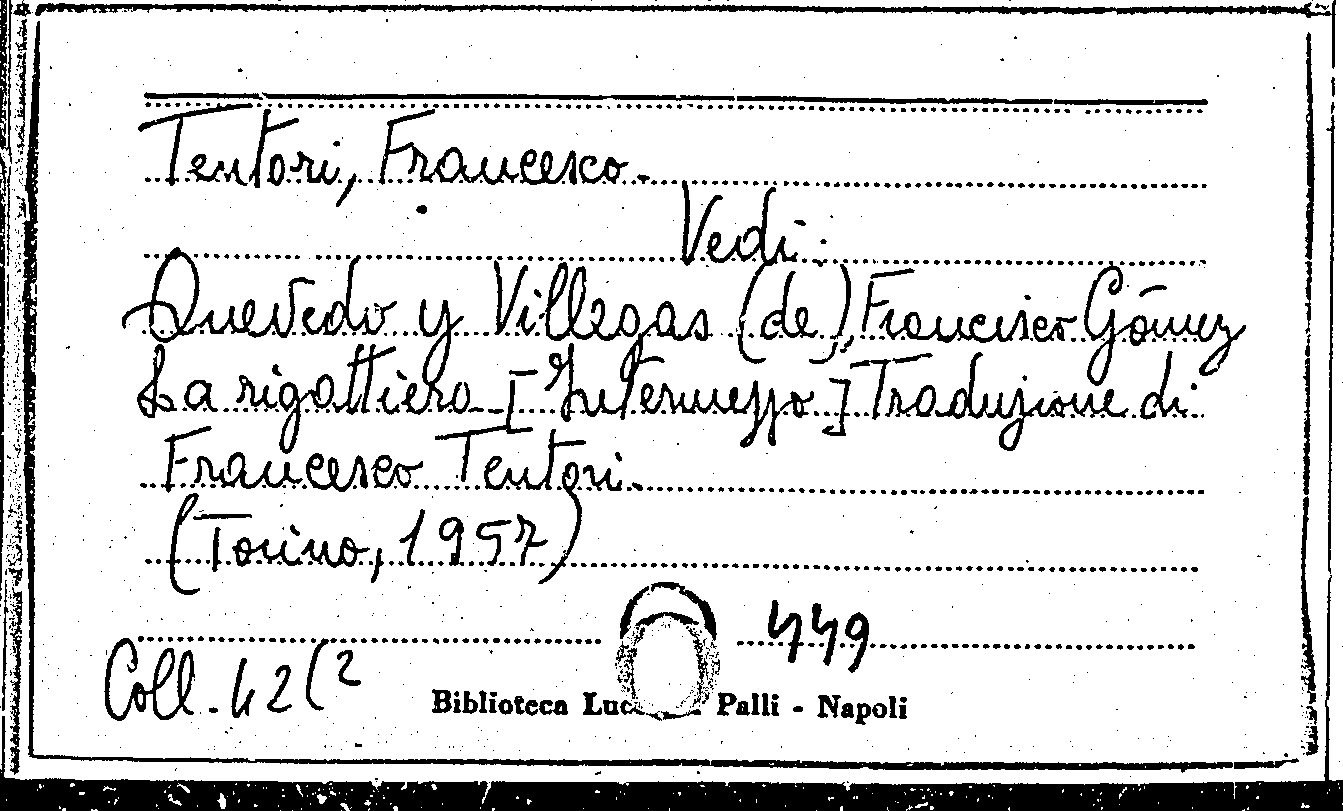 Tentori, Francesco.
Vedi:
Quevedo y Villegas (de), Francisco Gómez
La rigattiera [Intermezzo] Traduzione di
Francesco Tentori.
(Torino, 1957)
449
Coll. 42(2
Biblioteca Palli - Napoli